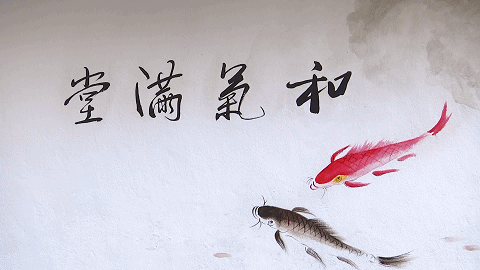 和氣滿堂